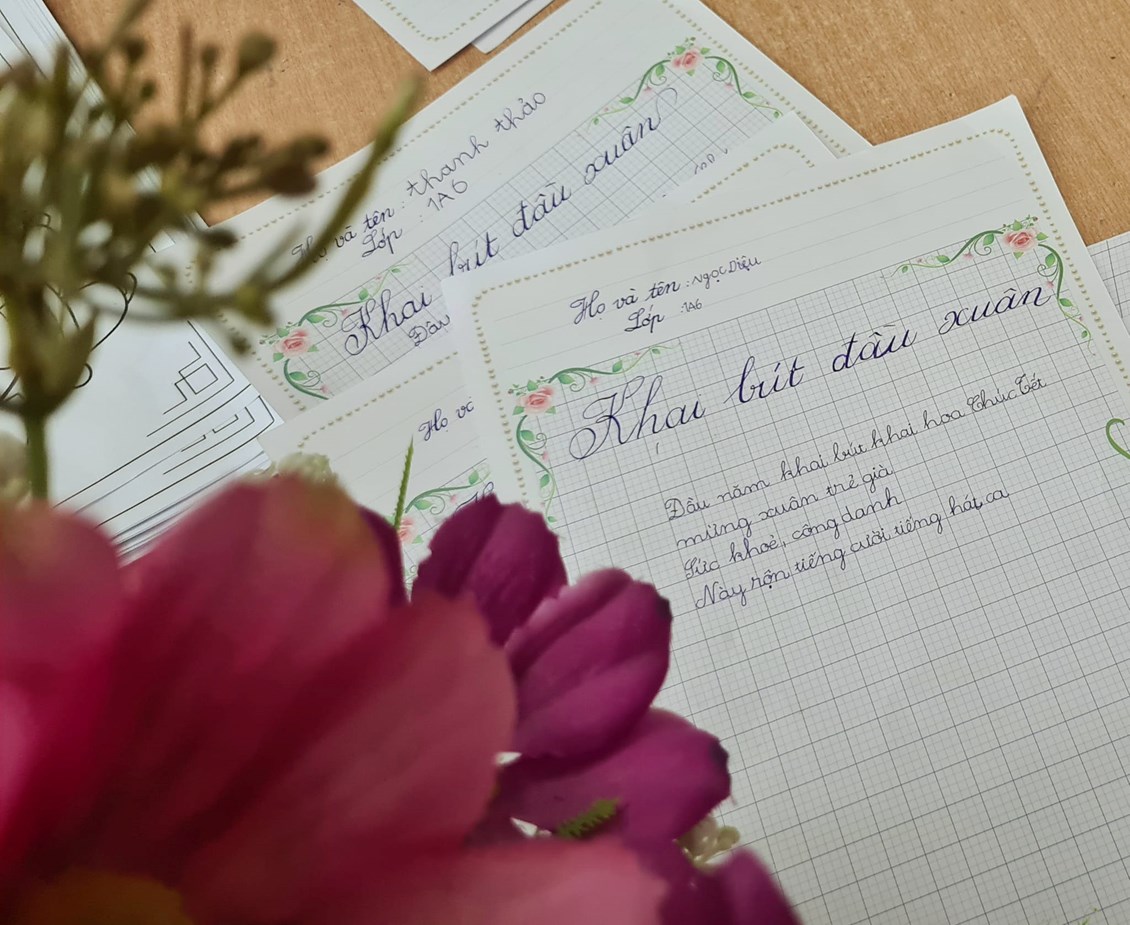 Họ và tên : thanh thảo
Lớp : 1A6
Khai bút đầu xuân
Đầu
Họ và tên : Ngọc Diệu
Lớp : 1A6
Khai bút đầu xuân
Đầu năm khai bút khai hoa Chúc Tết
mừng xuân trẻ già
Sức khoẻ, công danh
Này rộn tiếng cười tiếng hát ca
Họ